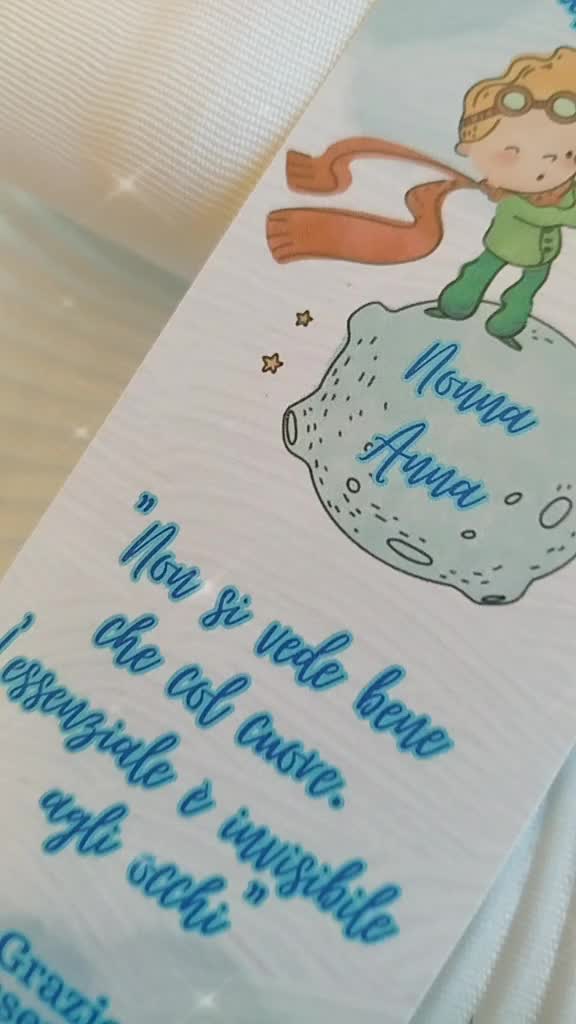 Nonna
Anna
"Non si vede bene
che col cuore.
l'essenziale è invisibile
agli occhi"